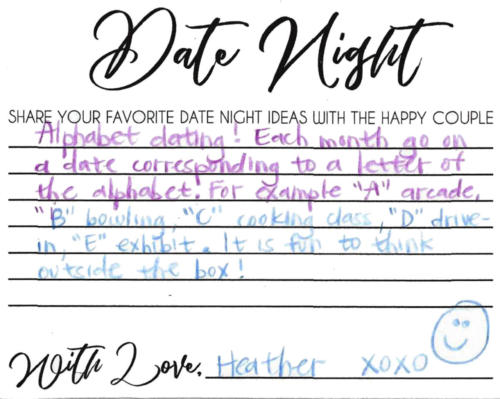 Date Night
SHARE YOUR FAVORITE DATE NIGHT IDEAS WITH THE HAPPY COUPLE
Alphabet dating! Each month go on
a date corresponding to a letter of
the alphabet! For example "A" arcade,
"B" bowling, "C" cooking class, "D" drive-
in, "E" exhibit. It is fun to think
outside the box!
With Love, Heather xoxo